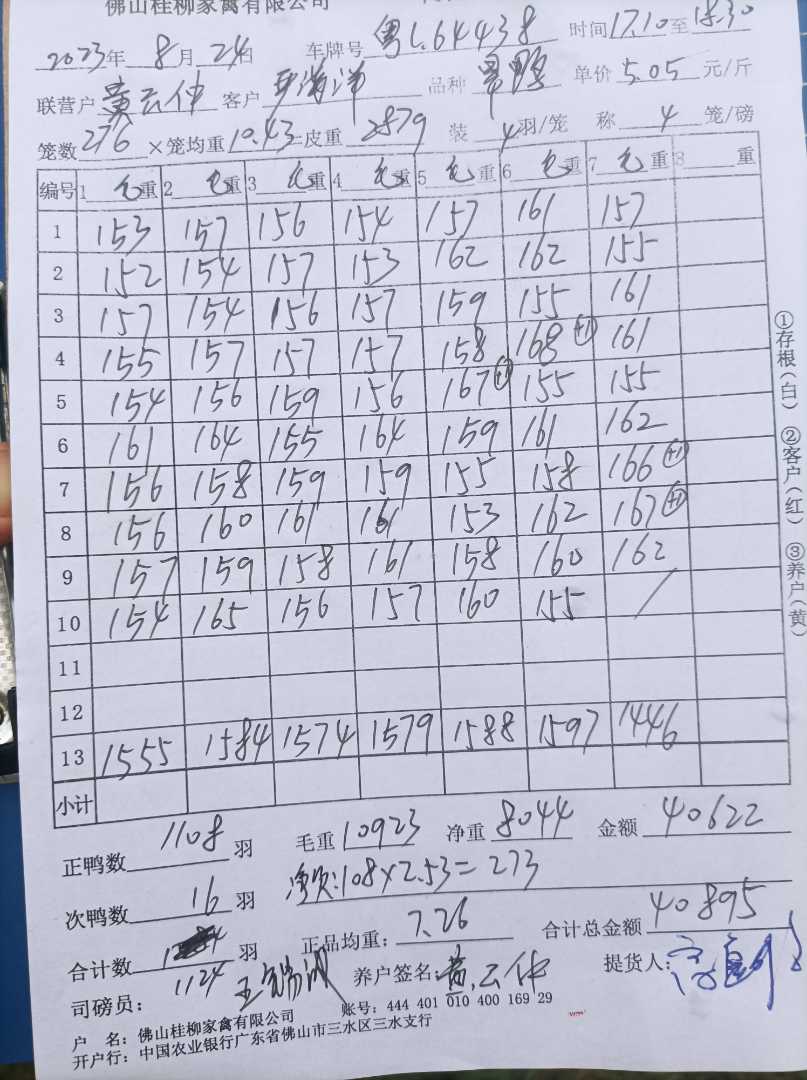 佛山桂柳家禽有限公司
2023年 8月 24日 车牌号 粤L.64438 时间17.10至18.30
联营户 黄云仲 客户 海洋 品种 单价 5.05 元/斤
笼数 276 ×笼均重 10.43 =皮重 2879 装 4 羽/笼 称 4 笼/磅
编号 1 毛重 2 毛重 3 毛重 4 毛重 5 毛重 6 毛重 7 毛重 8 重
1 153 157 156 154 157 161 157
2 152 154 157 153 162 162 155
3 157 154 156 157 159 155 161
4 155 157 157 157 158 168(+1) 161
5 154 156 159 156 167(+1) 155 155
6 161 164 155 164 159 161 162
7 156 158 159 159 155 158 166(+1)
8 156 160 161 161 153 162 167(+1)
9 157 159 158 161 158 160 162
10 154 165 156 157 160 155 /
11
12
13 1555 1584 1574 1579 1588 1597 1446
小计
正鸭数 1108 羽 毛重 10923 净重 8044 金额 40622
次鸭数 16 羽 108×2.53=273
合计数 1124 羽 正品均重: 7.26 合计总金额 40895
司磅员: 养户签名: 黄云仲 提货人:
户 名: 佛山桂柳家禽有限公司 账号: 444 401 010 400 169 29
开户行: 中国农业银行广东省佛山市三水区三水支行
①存根(白) ②客户(红) ③养户(黄)